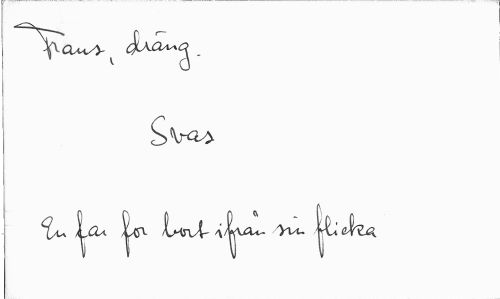 Frans, dräng.
Svas
En far for bort ifrån sin flicka